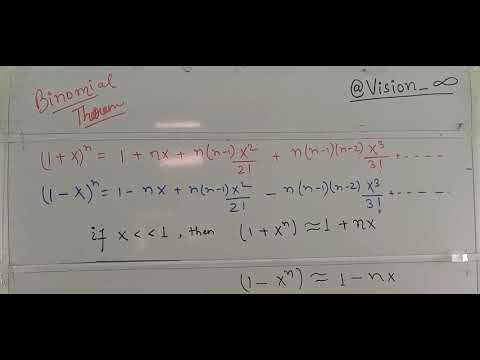 Binomial
Theorem
@Vision_∞
(1+x)ⁿ = 1 + nx + n(n-1) x²/2! + n(n-1)(n-2) x³/3! + - - - -
(1-x)ⁿ = 1 - nx + n(n-1) x²/2! - n(n-1)(n-2) x³/3! + - - - - -
if x << 1, then (1+xⁿ) ≈ 1 + nx
(1-xⁿ) ≈ 1 - nx